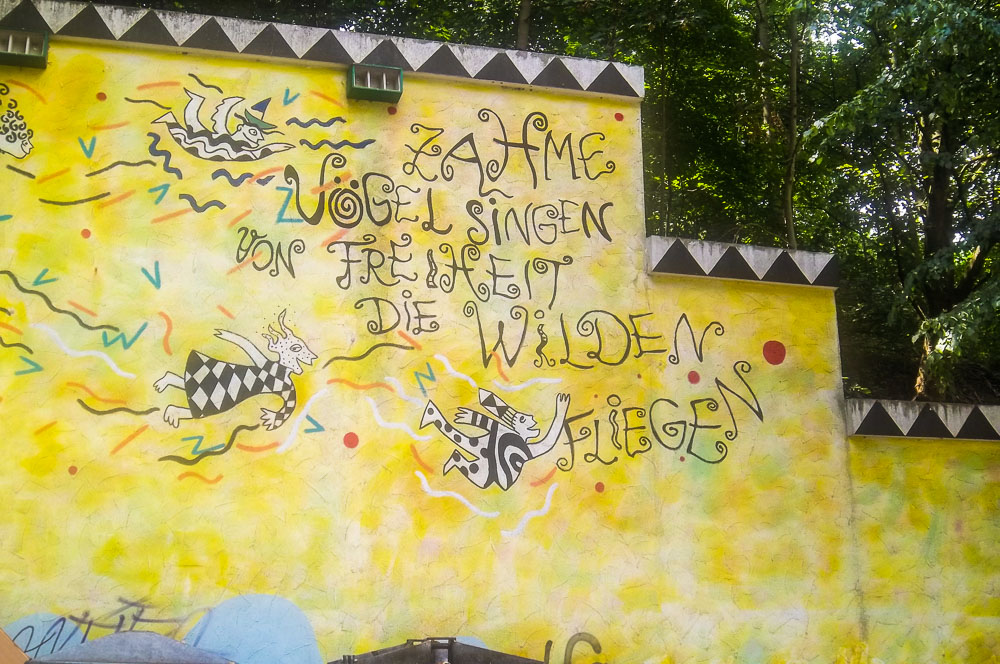 ZAHME
VÖGEL SINGEN
VON FREIHEIT
DIE WILDEN
FLIEGEN